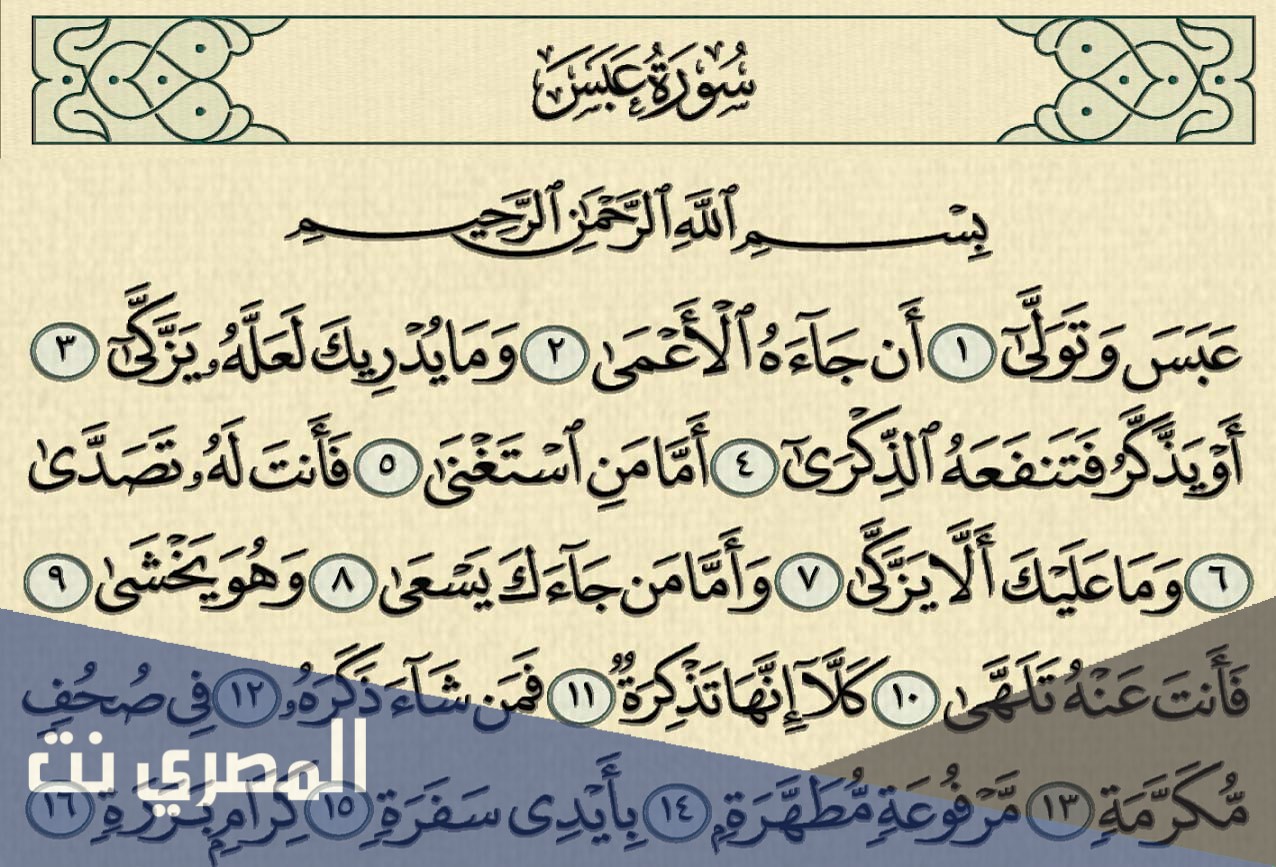 سُورَةُ عَبَسَ
بِسْمِ ٱللَّهِ ٱلرَّحْمَٰنِ ٱلرَّحِيمِ
عَبَسَ وَتَوَلَّىٰٓ ١ أَن جَآءَهُ ٱلْأَعْمَىٰ ٢ وَمَا يُدْرِيكَ لَعَلَّهُۥ يَزَّكَّىٰٓ ٣
أَوْ يَذَّكَّرُ فَتَنفَعَهُ ٱلذِّكْرَىٰٓ ٤ أَمَّا مَنِ ٱسْتَغْنَىٰ ٥ فَأَنتَ لَهُۥ تَصَدَّىٰ
٦ وَمَا عَلَيْكَ أَلَّا يَزَّكَّىٰ ٧ وَأَمَّا مَن جَآءَكَ يَسْعَىٰ ٨ وَهُوَ يَخْشَىٰ ٩
فَأَنتَ عَنْهُ تَلَهَّىٰ ١٠ كَلَّآ إِنَّهَا تَذْكِرَةٌ ١١ فَمَن شَآءَ ذَكَرَهُۥ ١٢ فِى صُحُفٍ
المصري نت
مُّكَرَّمَةٍ ١٣ مَّرْفُوعَةٍ مُّطَهَّرَةٍۭ ١٤ بِأَيْدِى سَفَرَةٍ ١٥ كِرَامٍۭ بَرَرَةٍ ١٦